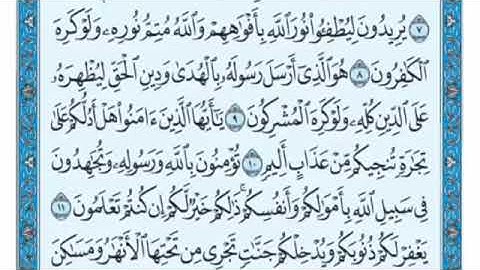 ٧ يُرِيدُونَ لِيُطْفِـُٔوا۟ نُورَ ٱللَّهِ بِأَفْوَٰهِهِمْ وَٱللَّهُ مُتِمُّ نُورِهِۦ وَلَوْ كَرِهَ
ٱلْكَٰفِرُونَ ٨ هُوَ ٱلَّذِىٓ أَرْسَلَ رَسُولَهُۥ بِٱلْهُدَىٰ وَدِينِ ٱلْحَقِّ لِيُظْهِرَهُۥ
عَلَى ٱلدِّينِ كُلِّهِۦ وَلَوْ كَرِهَ ٱلْمُشْرِكُونَ ٩ يَٰٓأَيُّهَا ٱلَّذِينَ ءَامَنُوا۟ هَلْ أَدُلُّكُمْ عَلَىٰ
تِجَٰرَةٍ تُنجِيكُم مِّنْ عَذَابٍ أَلِيمٍ ١٠ تُؤْمِنُونَ بِٱللَّهِ وَرَسُولِهِۦ وَتُجَٰهِدُونَ
فِى سَبِيلِ ٱللَّهِ بِأَمْوَٰلِكُمْ وَأَنفُسِكُمْ ۚ ذَٰلِكُمْ خَيْرٌ لَّكُمْ إِن كُنتُمْ تَعْلَمُونَ ١١
يَغْفِرْ لَكُمْ ذُنُوبَكُمْ وَيُدْخِلْكُمْ جَنَّٰتٍ تَجْرِى مِن تَحْتِهَا ٱلْأَنْهَٰرُ وَمَسَٰكِنَ